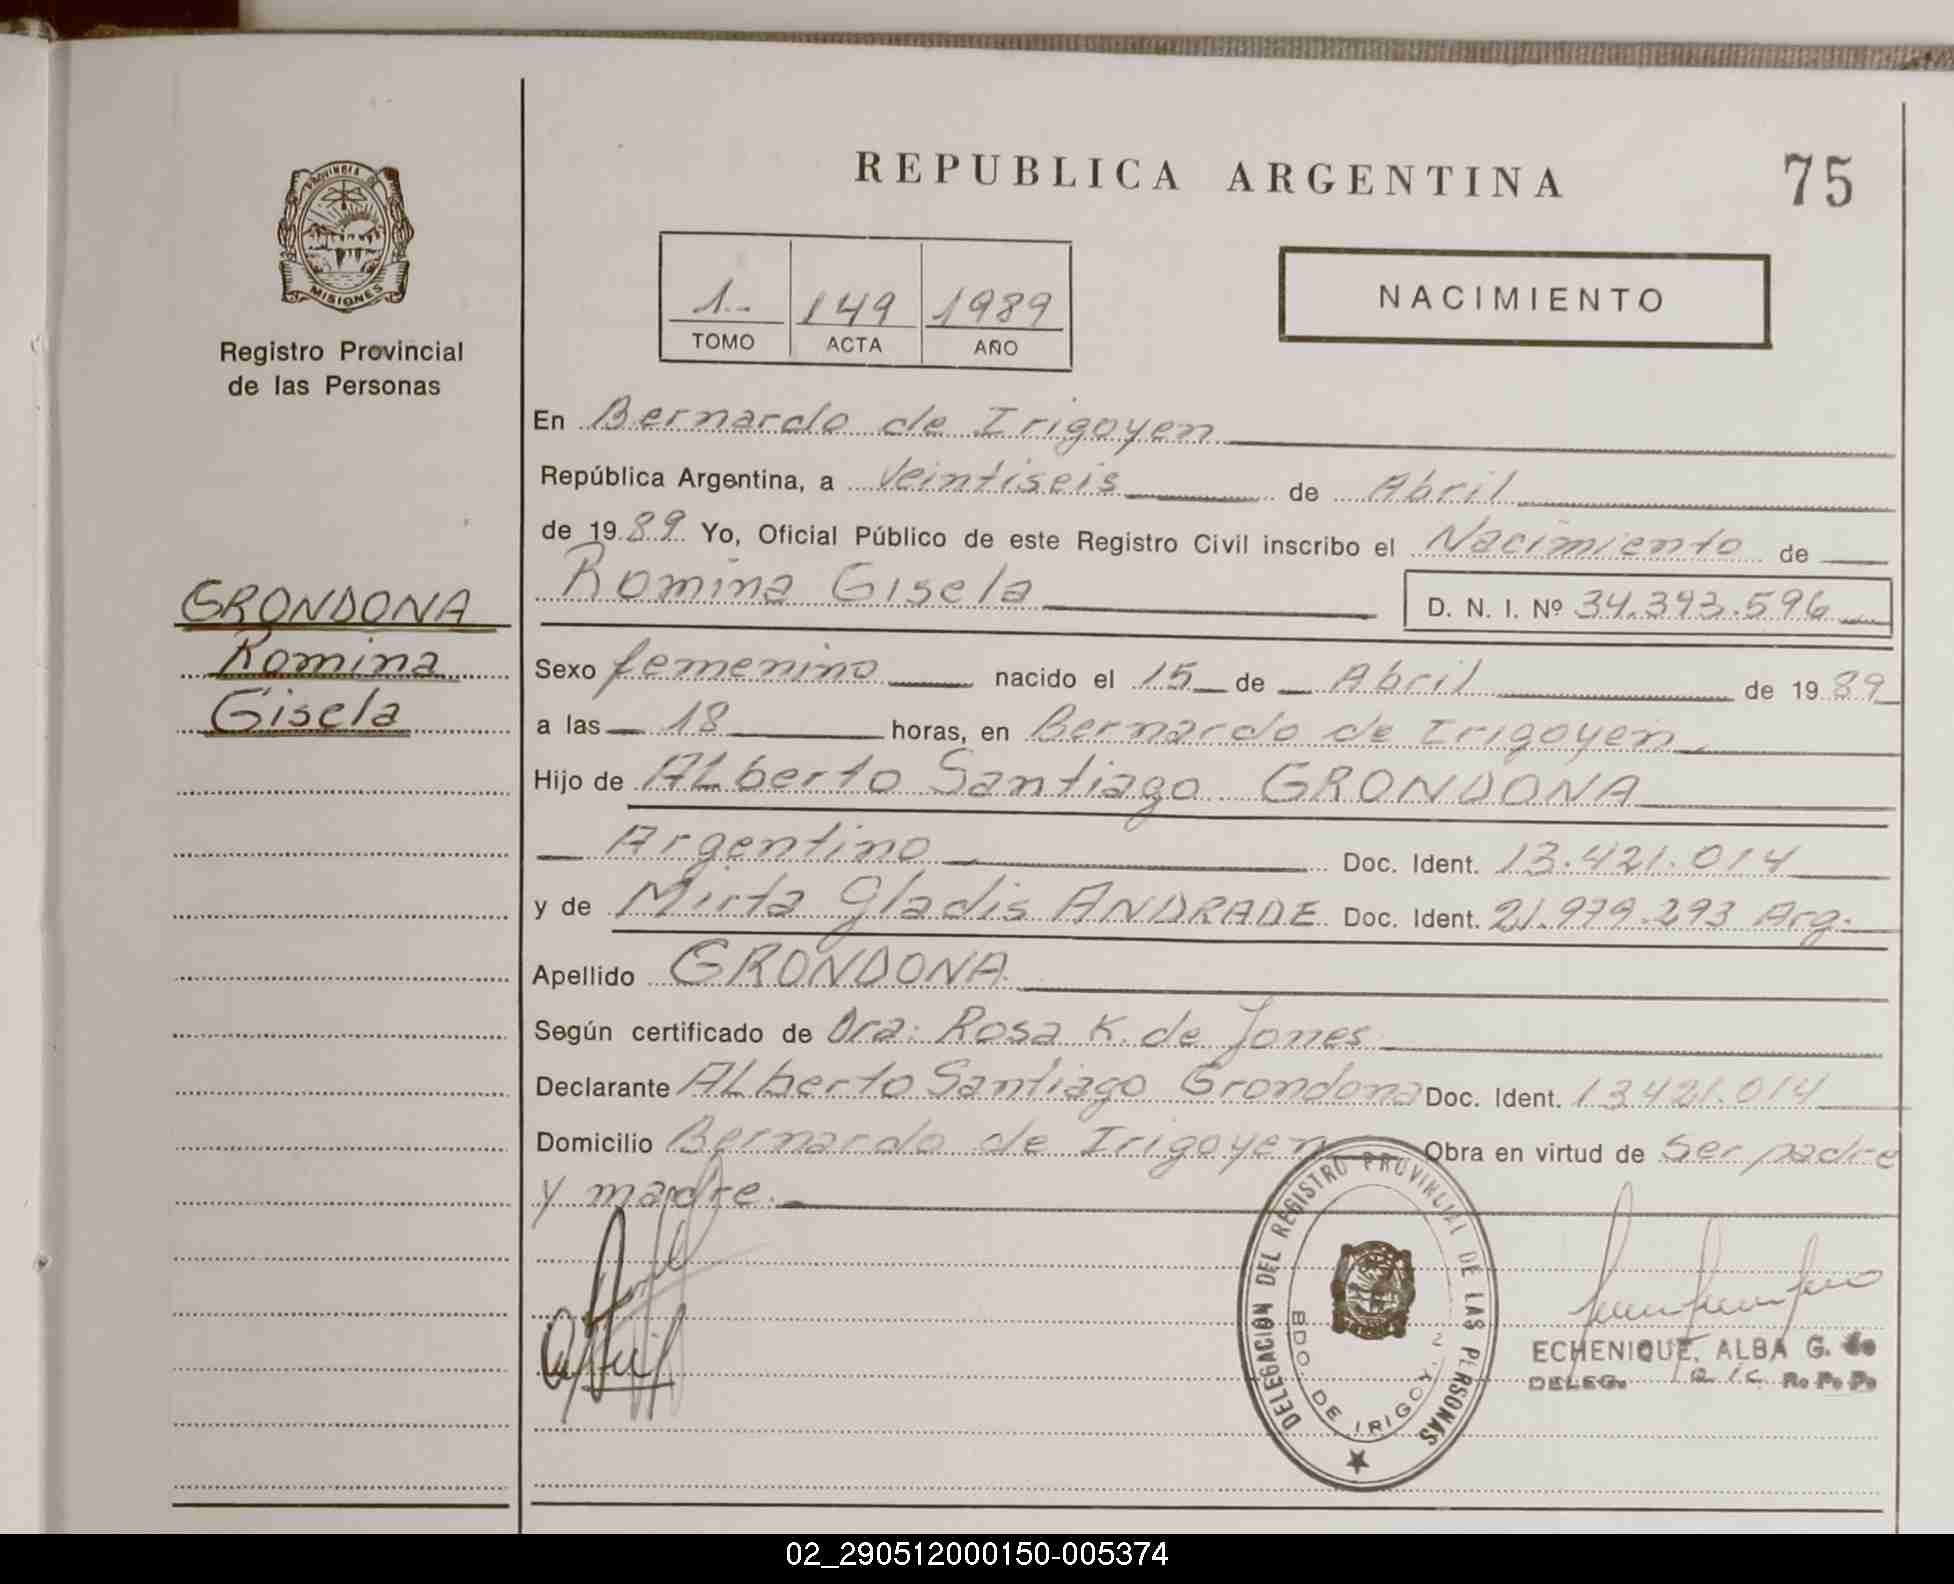 REPUBLICA ARGENTINA
75
PROVINCIA DE
MISIONES
Registro Provincial
de las Personas
1.-
149
1989
TOMO
ACTA
AÑO
NACIMIENTO
En Bernardo de Irigoyen
República Argentina, a Veintiseis de Abril
de 1989 Yo, Oficial Público de este Registro Civil inscribo el Nacimiento de
Romina Gisela
D. N. I. Nº 34.393.596
GRONDONA
Romina
Gisela
Sexo femenino nacido el 15 de Abril de 1989
a las 18 horas, en Bernardo de Irigoyen.
Hijo de ALberto Santiago GRONDONA
Argentino Doc. Ident. 13.421.014
y de Mirta Gladis ANDRADE Doc. Ident. 21.979.293 Arg.
Apellido GRONDONA
Según certificado de Dra: Rosa K. de Jones
Declarante ALberto Santiago Grondona Doc. Ident. 13421.014
Domicilio Bernardo de Irigoyen Obra en virtud de Ser padre
y madre.
DELEGACIÓN DEL REGISTRO PROVINCIAL DE LAS PERSONAS
BDO. DE IRIGOY.
ECHENIQUE, ALBA G. de
DELEG. R. P. P.
02_290512000150-005374